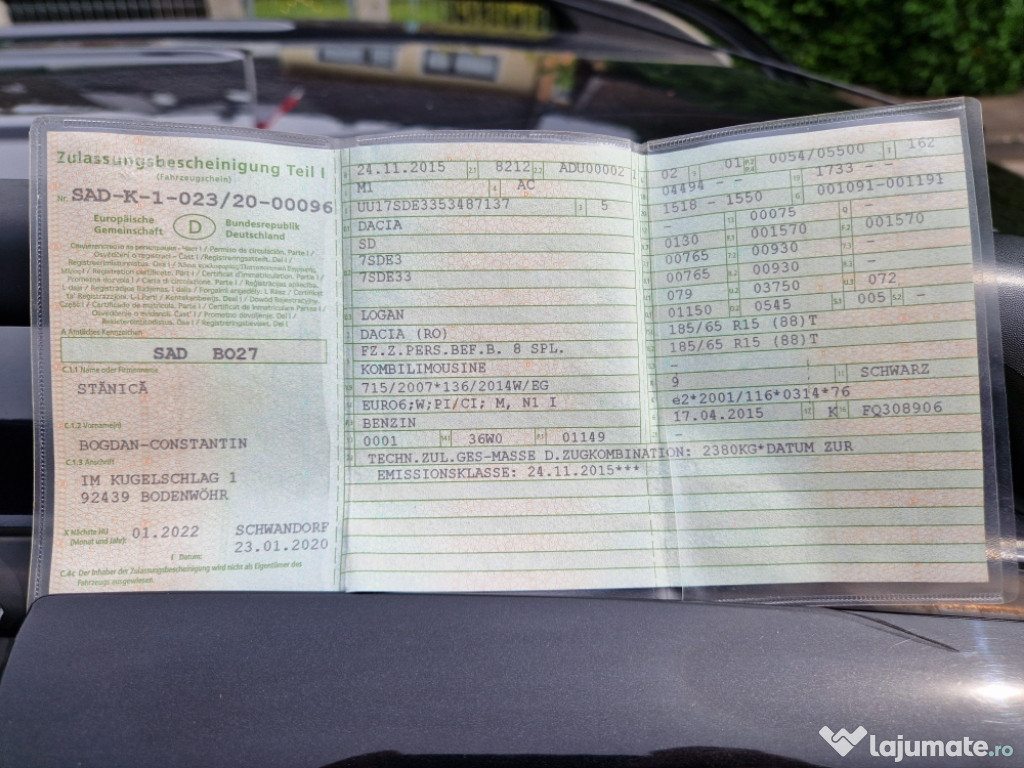 Zulassungsbescheinigung Teil I
(Fahrzeugschein)
Nr. SAD-K-1-023/20-00096
Europäische Gemeinschaft
D
Bundesrepublik Deutschland
A Amtliches Kennzeichen
SAD BO27
C.1.1 Name oder Firmenname
STĂNICĂ
C.1.2 Vorname(n)
BOGDAN-CONSTANTIN
C.1.3 Anschrift
IM KUGELSCHLAG 1
92439 BODENWÖHR
X Nächste HU (Monat und Jahr):
01.2022
SCHWANDORF
I Datum:
23.01.2020
C.4c Der Inhaber der Zulassungsbescheinigung wird nicht als Eigentümer des
Fahrzeugs ausgewiesen.
24.11.2015 8212 ADU00002
M1 AC
UU17SDE3353487137 5
DACIA
SD
7SDE3
7SDE33
LOGAN
DACIA (RO)
FZ.Z.PERS.BEF.B. 8 SPL.
KOMBILIMOUSINE
715/2007*136/2014W/EG
EURO6;W;PI/CI; M, N1 I
BENZIN
0001 36W0 01149
TECHN.ZUL.GES-MASSE D.ZUGKOMBINATION: 2380KG*DATUM ZUR
EMISSIONSKLASSE: 24.11.2015***
02 01 0054/05500 162
04494 - - 1733 - -
1518 - 1550 001091-001191
- 00075 -
0130 001570 001570
00765 00930 -
00765 00930 -
079 03750 072
01150 0545 005
185/65 R15 (88)T
185/65 R15 (88)T
-
9 SCHWARZ
e2*2001/116*0314*76
17.04.2015 K FQ308906
-
lajumate.ro